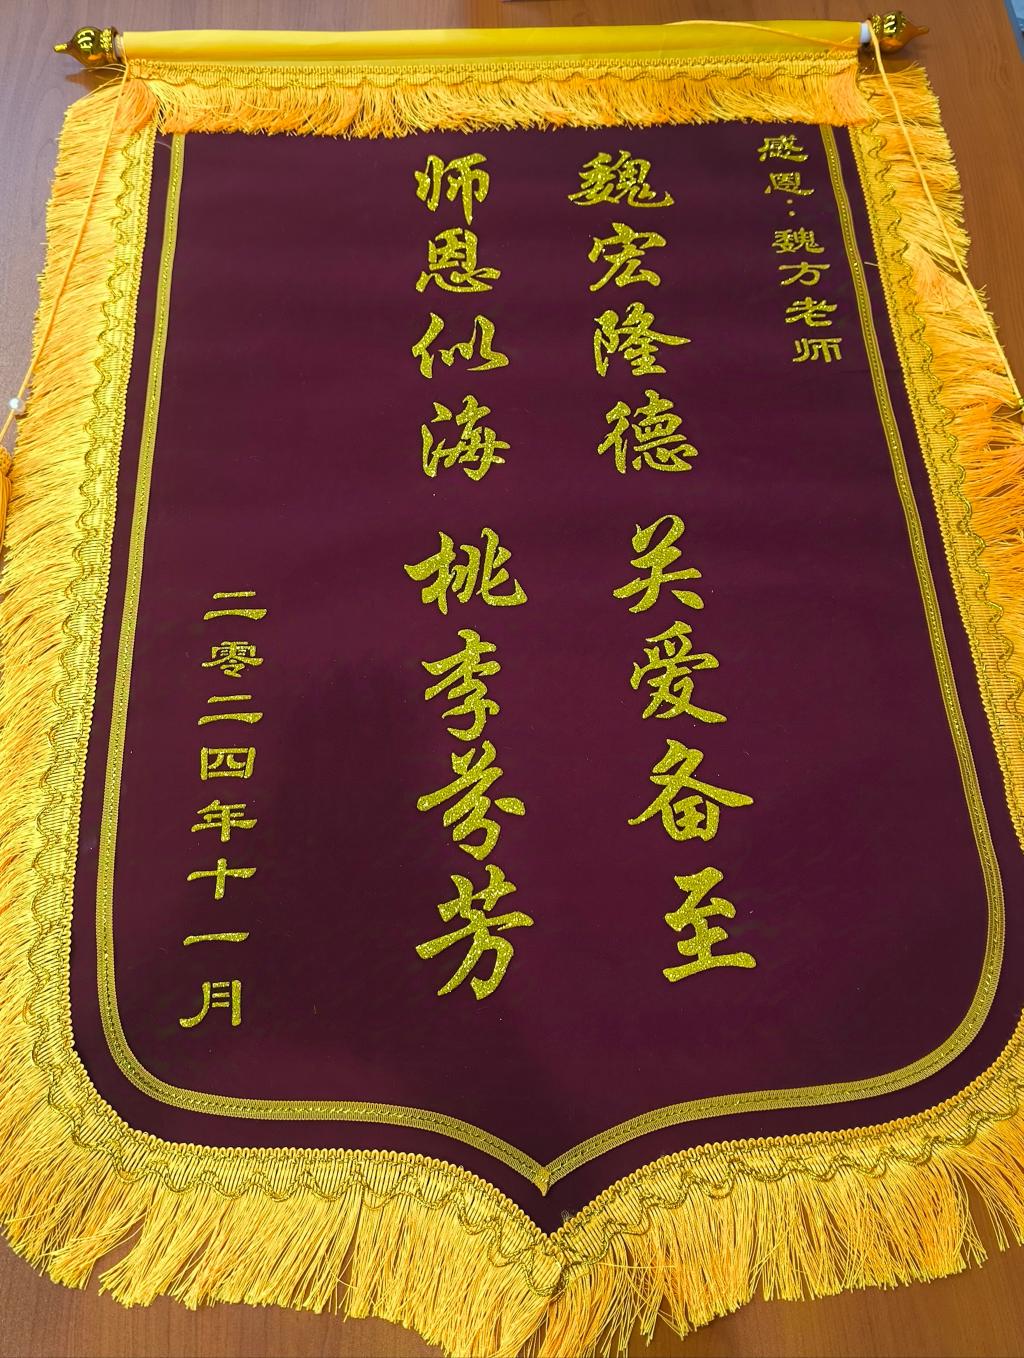 感恩:魏方老师
魏宏隆德 关爱备至
师恩似海 桃李芬芳
二零二四年十一月